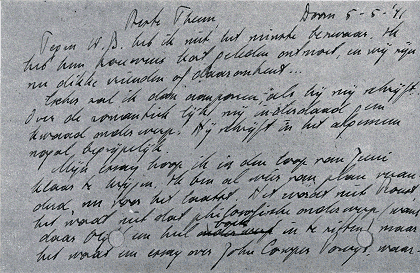 Beste Theun, Doorn 5-5-'41
Tegen W.B. heb ik niet het minste bezwaar. Ik
heb hem trouwens kort geleden ontmoet, en wij zijn
nu dikke vrienden of daaromtrent...
zal ik dan als hij mij schrijft.
Over de romantiek lijkt mij inderdaad een
kwaad onderwerp. Hij schrijft in het algemeen
nogal begrijpelijk.
Mijn essay hoop ik in den loop van Juni
klaar te krijgen. Ik ben al weer van plan veran-
derd nu voor het laatst. Het wordt niet
het wordt niet dat philosofische onderwerp (want
daar een heel boek in te zitten) maar
het wordt een essay over John Cowper Powys, waar-